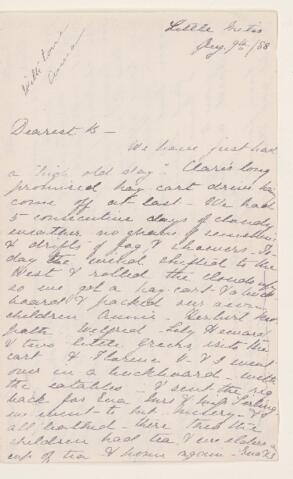 With love
Annie
Little Metis
Aug 9th/88
Dearest B—
We have just had
a "high old day". Clare's long
promised hay cart drive has
come off at last — We had
5 consecutive days of cloudy
weather no gleams of sunshine
& drifts of fog & showers. To
day the wind shifted to the
West & rolled the clouds off
so we got a hay-cart & a buck
board & packed our seven
children Annie Herbert
Wilfred Lily Howard
& two little into the
cart & Florence & I went
over in a buckboard with
the eatables I sent the rig
back for Eva
we went to & I
all bathed there then the
children had tea & we elders a
cup of tea & home again